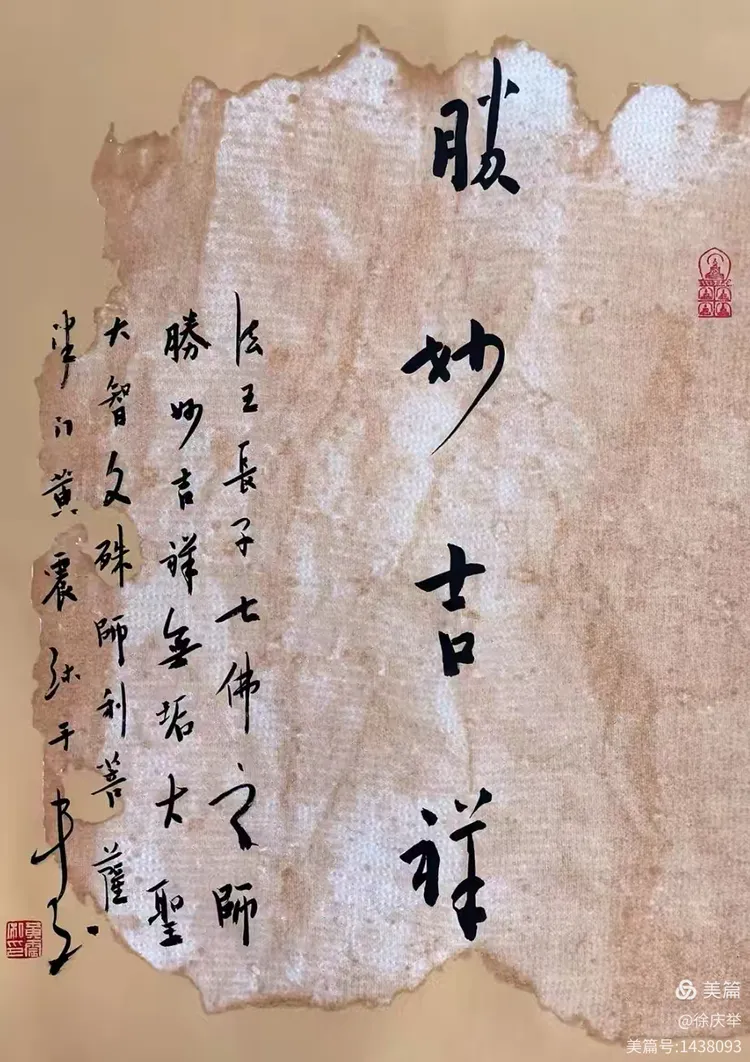 勝妙吉祥
法王長子七佛之師
勝妙吉祥無垢大聖
大智文殊師利菩薩
门黄震于
美篇
@徐庆举
美篇号:1438093